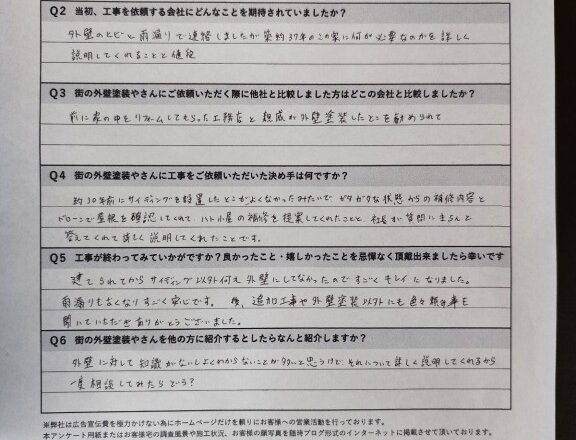 Q2 当初、工事を依頼する会社にどんなことを期待されていましたか？
外壁のヒビと雨漏りで連絡しましたが築約37年のこの家に何が必要なのかを詳しく
説明してくれることと値段
Q3 街の外壁塗装やさんにご依頼いただく際に他社と比較しました方はどこの会社と比較しましたか？
前に家の中をリフォームしてもらった工務店と親戚が外壁塗装したとこを勧められて
Q4 街の外壁塗装やさんに工事をご依頼いただいた決め手は何ですか？
約30年前にサイディングを設置したとこがよくなかったみたいで、ガタガタな状態からの補修内容と
ドローンで屋根を確認してくれて、ハト小屋の補修を提案してくれたことと、社長が質問にきちんと
答えてくれて詳しく説明してくれたことです。
Q5 工事が終わってみていかがですか？良かったこと・嬉しかったことを忌憚なく頂戴出来ましたら幸いです
建てられてからサイディング以外何も外壁にしてなかったのですごくキレイになりました。
雨漏りもなくなりすごく安心です。後、追加工事や外壁塗装以外にも色々頼み事を
聞いていただきありがとうございました。
Q6 街の外壁塗装やさんを他の方に紹介するとしたらなんと紹介しますか？
外壁に対して知識がないしよくわからないことが多いと思うけど、それについて詳しく説明してくれるから
一度相談してみたらどう？
※弊社は広告宣伝費を極力かけない為にホームページだけを頼りにお客様への営業活動を行っております。
本アンケート用紙またはお客様宅の調査風景や施工状況、お客様の顔写真を随時ブログ形式のインターネットに掲載させて頂いております。